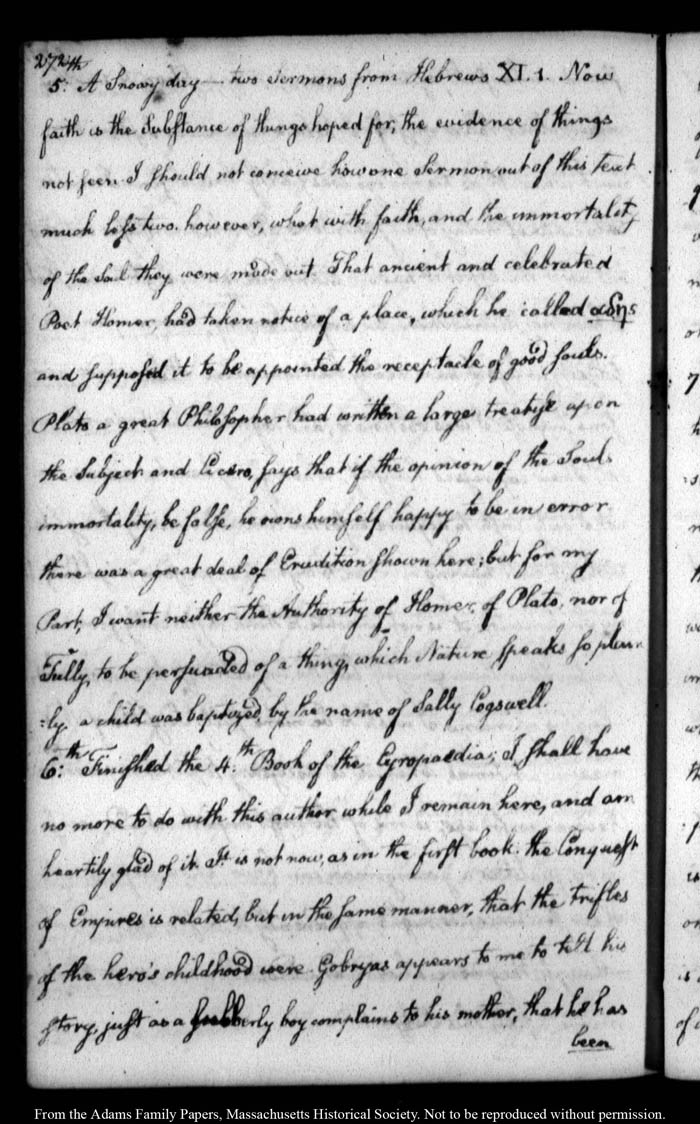 272th
5. A Snowy day — two sermons from Hebrews XI. 1. Now
faith is the Substance of things hoped for, the evidence of things
not seen. I should not conceive how one Sermon out of this text
much less two. however, what with faith, and the immortality
of the Soul they were made out. That ancient and celebrated
Poet Homer, had taken notice of a place, which he called αδης
and supposed it to be appointed the receptacle of good souls.
Plato a great Philosopher had written a large treatise upon
the Subject and Cicero, says that if the opinion of the Souls
immortality, be false, he owns himself happy to be in error.
there was a great deal of Erudition shown here; but for my
Part, I want neither the Authority of Homer, of Plato, nor of
Tully, to be persuaded of a thing, which Nature speaks so plain
:ly. a child was baptized, by the name of Sally Cogswell.
6:th Finished the 4:th Book of the Cyropaedia; I shall have
no more to do with this author while I remain here, and am
heartily glad of it. It is not now, as in the first book: the Conquest
of Empires is related, but in the same manner, that the trifles
of the hero's childhood were. Gobryas appears to me to tell his
story, just as a lubberly boy complains to his mother, that he has
been
From the Adams Family Papers, Massachusetts Historical Society. Not to be reproduced without permission.